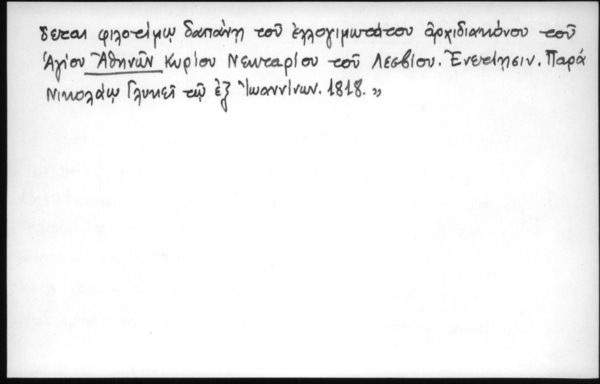 δεται φιλοτίμῳ δαπάνῃ τοῦ ἐλλογιμωτάτου ἀρχιδιακόνου τοῦ
Ἁγίου Ἀθηνῶν Κυρίου Νεκταρίου τοῦ Λεσβίου. Ἐνετίησιν. Παρά
Νικολάῳ Γλυκεῖ τῷ ἐξ Ἰωαννίνων. 1818. »